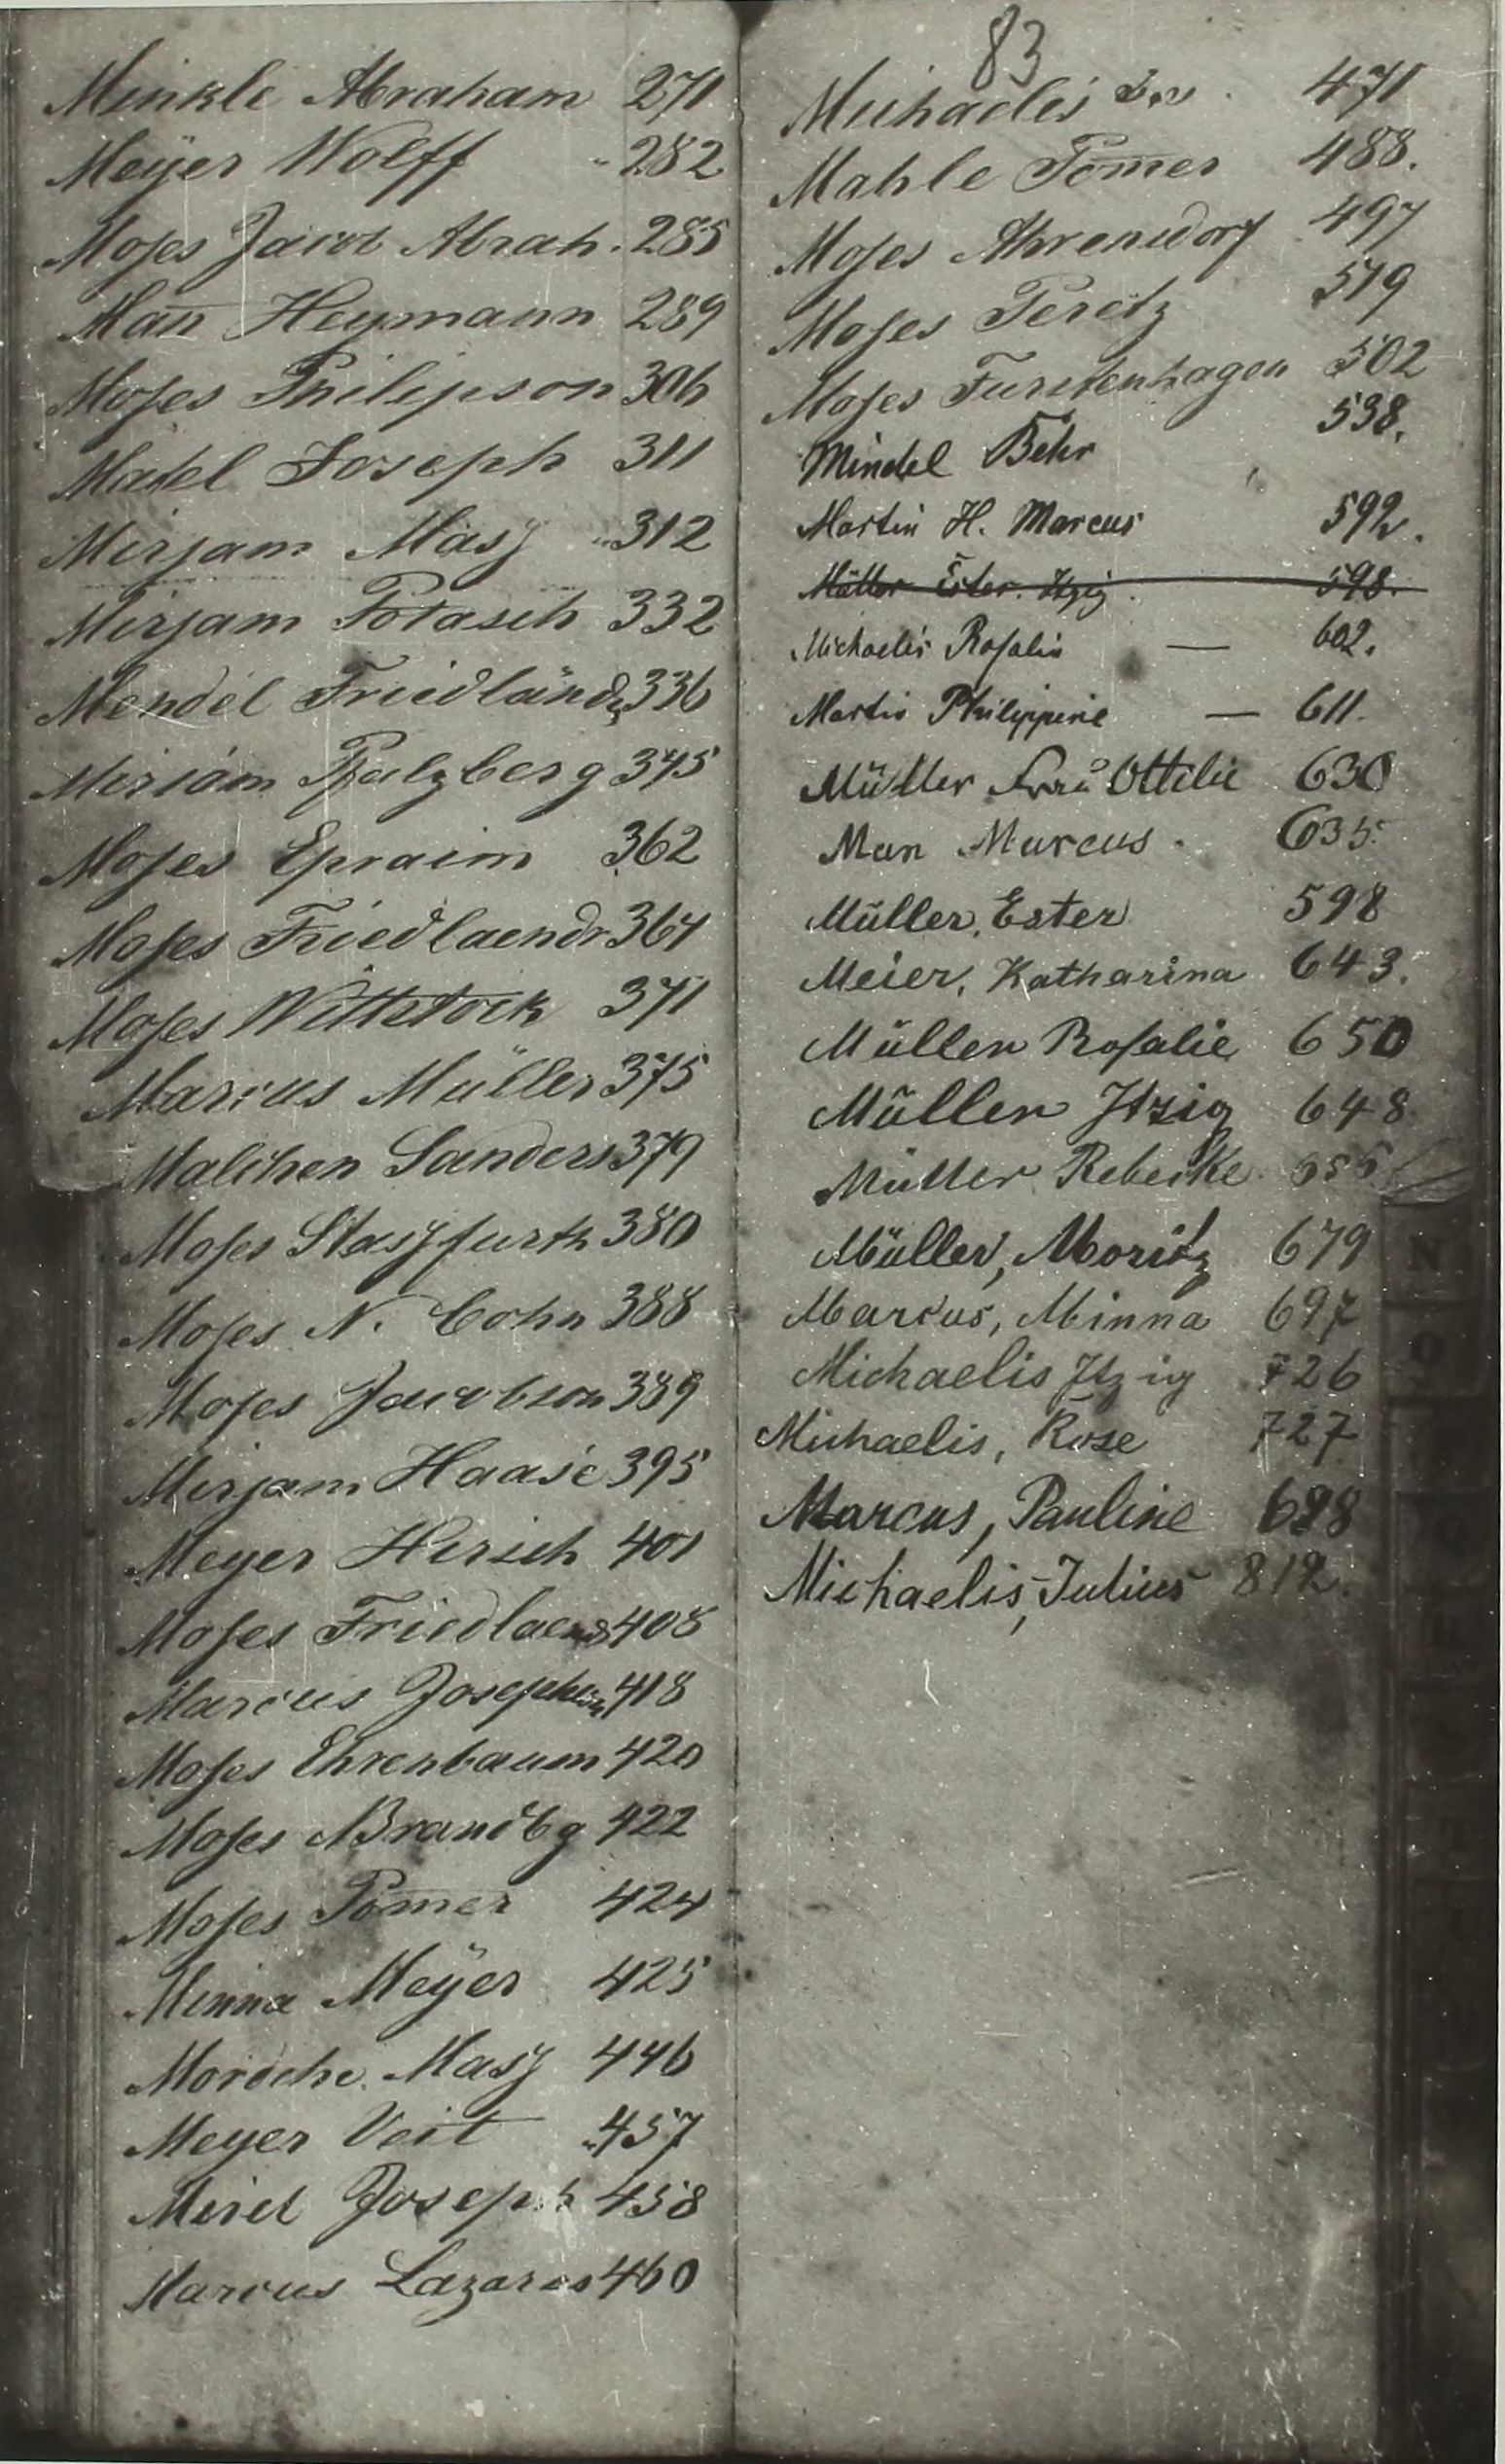 Minkle Abraham 271
Meÿer Wolff 282
Moses Jacob Abrah. 285
Man̄ Heymann 289
Moses Philipson 306
Matel Joseph 311
Mirjam Massz 312
Mirjam Potasch 332
Mendel Friedländr 336
Miriam Pfalzberg 345
Moses Epraim 362
Moses Friedlaendr 364
Moses Wittstock 371
Marcus Müller 375
Malchen Sanders 379
Moses Staszfurth 380
Moses N. Cohn 388
Moses Jacobson 389
Mirjam Haase 395
Meyer Hirsch 401
Moses Friedlaend 408
Marcus Josephson 418
Moses Ehrenbaum 420
Moses Brandbg 422
Moses Pom̄er 424
Minna Meÿer 425
Mordche Masz 446
Meyer Veit 457
Mirel Joseph 458
Marcus Lazarus 460
83
Michaelis 471
Mahle Pom̄er 488.
Moses Ahrensdorf 497
Moses Peretz 519
Moses Furstenhagen 502
Mindel Behr 538.
Martin H. Marcus 592.
Müller Ester. Itzig. 598.
Michaelis Rosalie — 602.
Martin Philippine — 611.
Müller Frau Ottilie 630
Man Marcus. 635.
Müller, Ester 598
Meier, Katharina 643.
Müller Rosalie 650
Müller Itzig 648
Müller Rebecke
Müller, Moritz 679
Marcus, Minna 697
Michaelis Itzig 726
Michaelis, Rose 727
Marcus, Pauline 698
Michaelis, Julius 812.
N
O